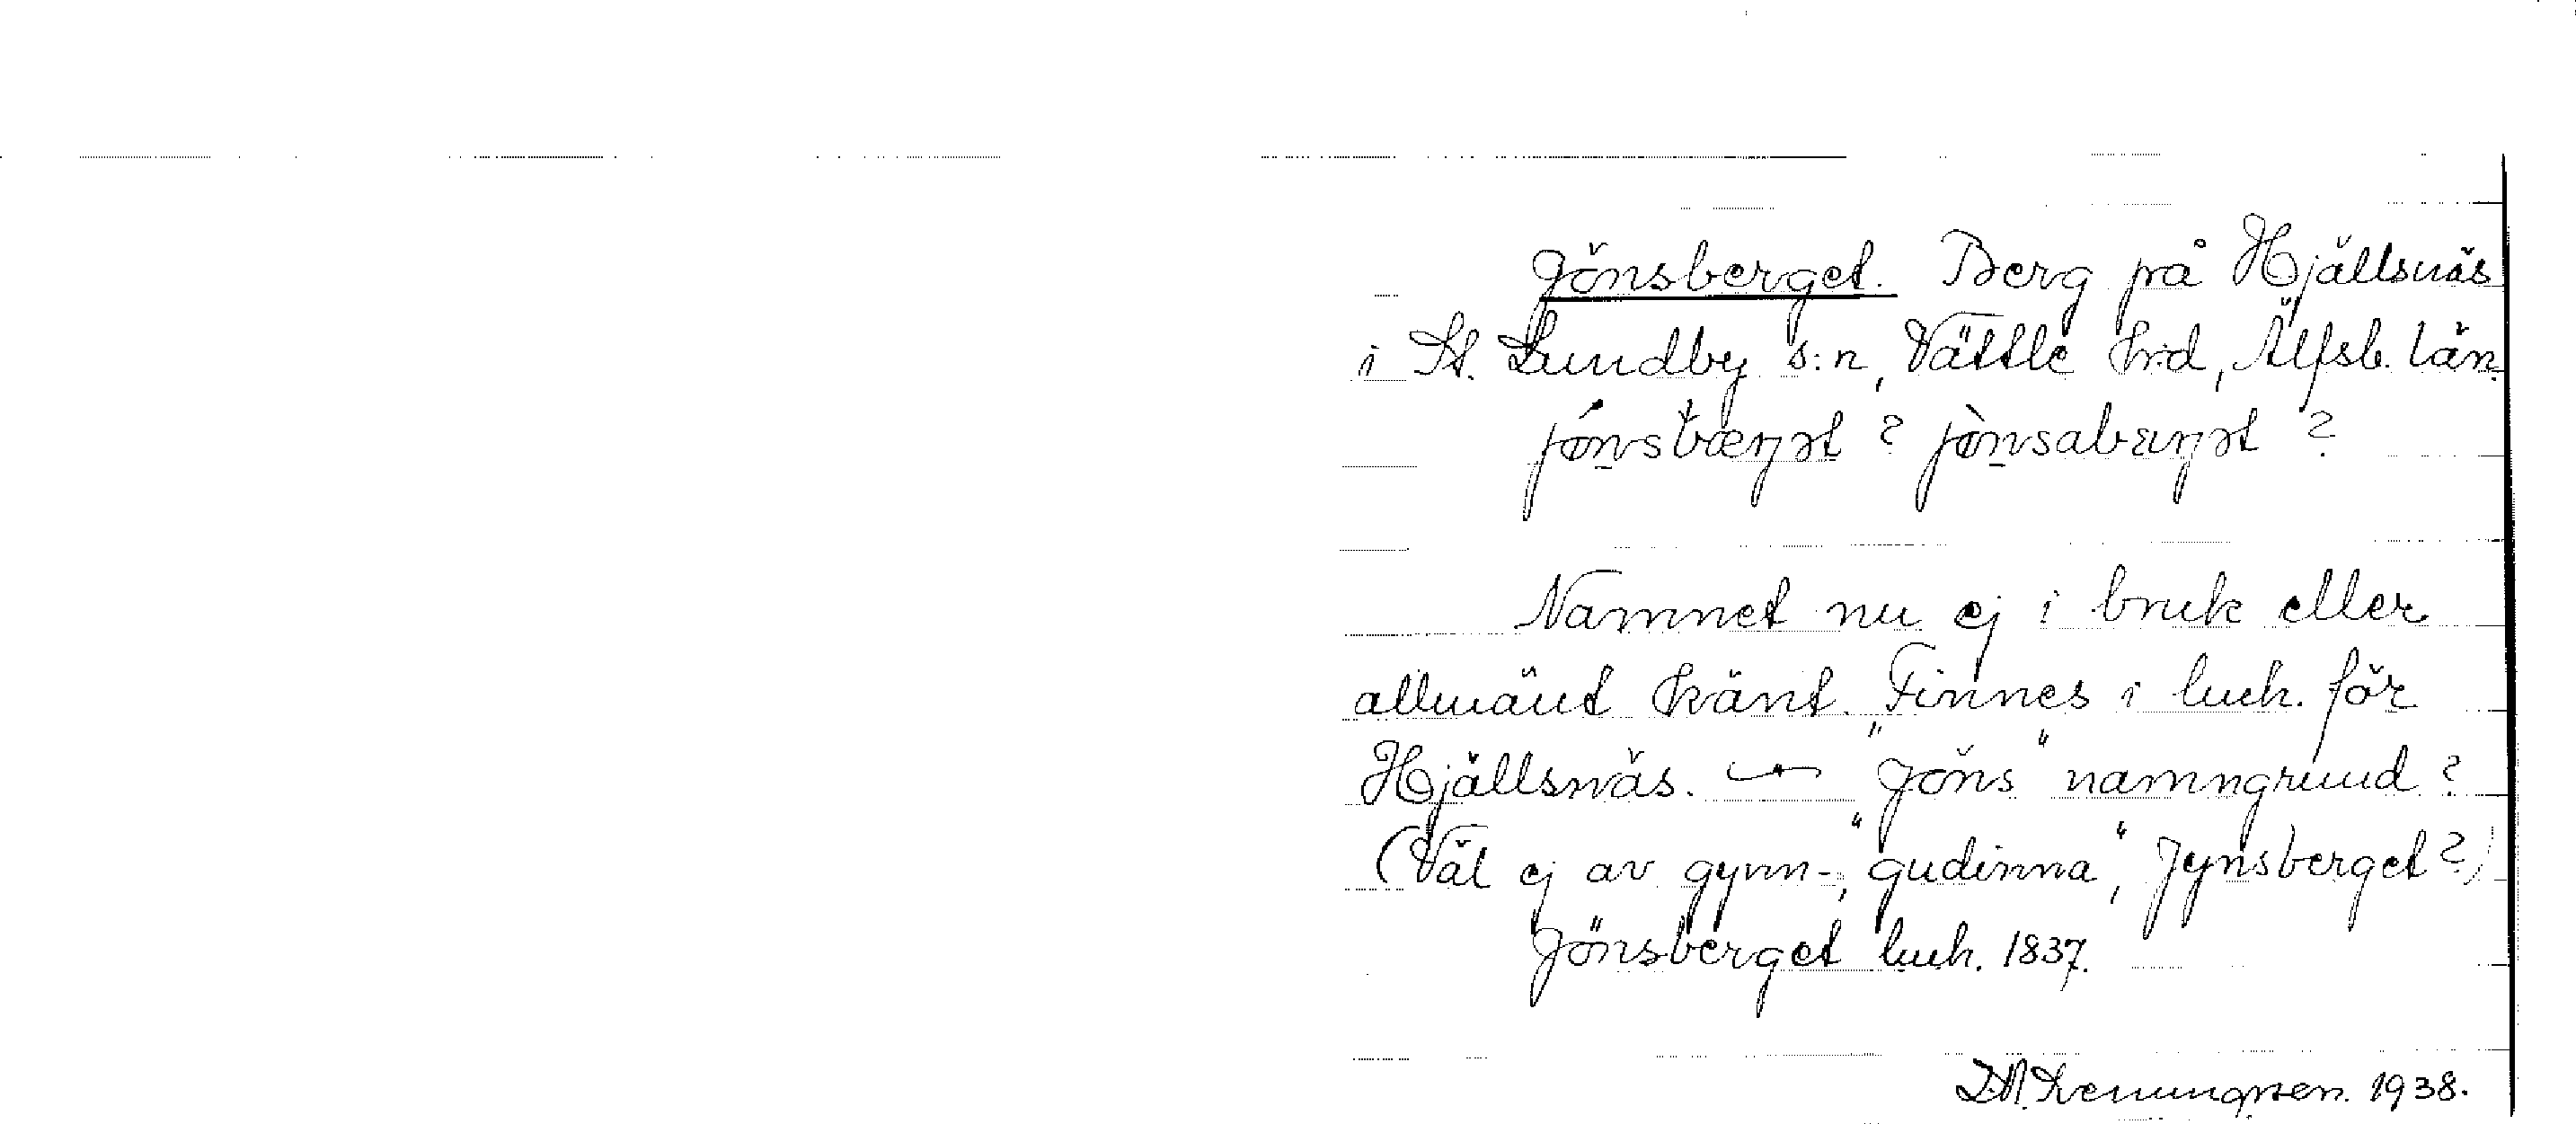 Jönsberget. Berg på Hjällsnäs
i St. Lundby s:n, Vättle hrd, Älfsb. län.
jǿnsbærjət? jø̀nsabærjət?
Namnet nu ej i bruk eller
allmänt känt. Finnes i luch. för
Hjällsnäs. — "Jöns" namngrund?
(Väl ej av gynn-, "gudinna", Jynsberget?)
Jönsberget luch. 1837.
1938.